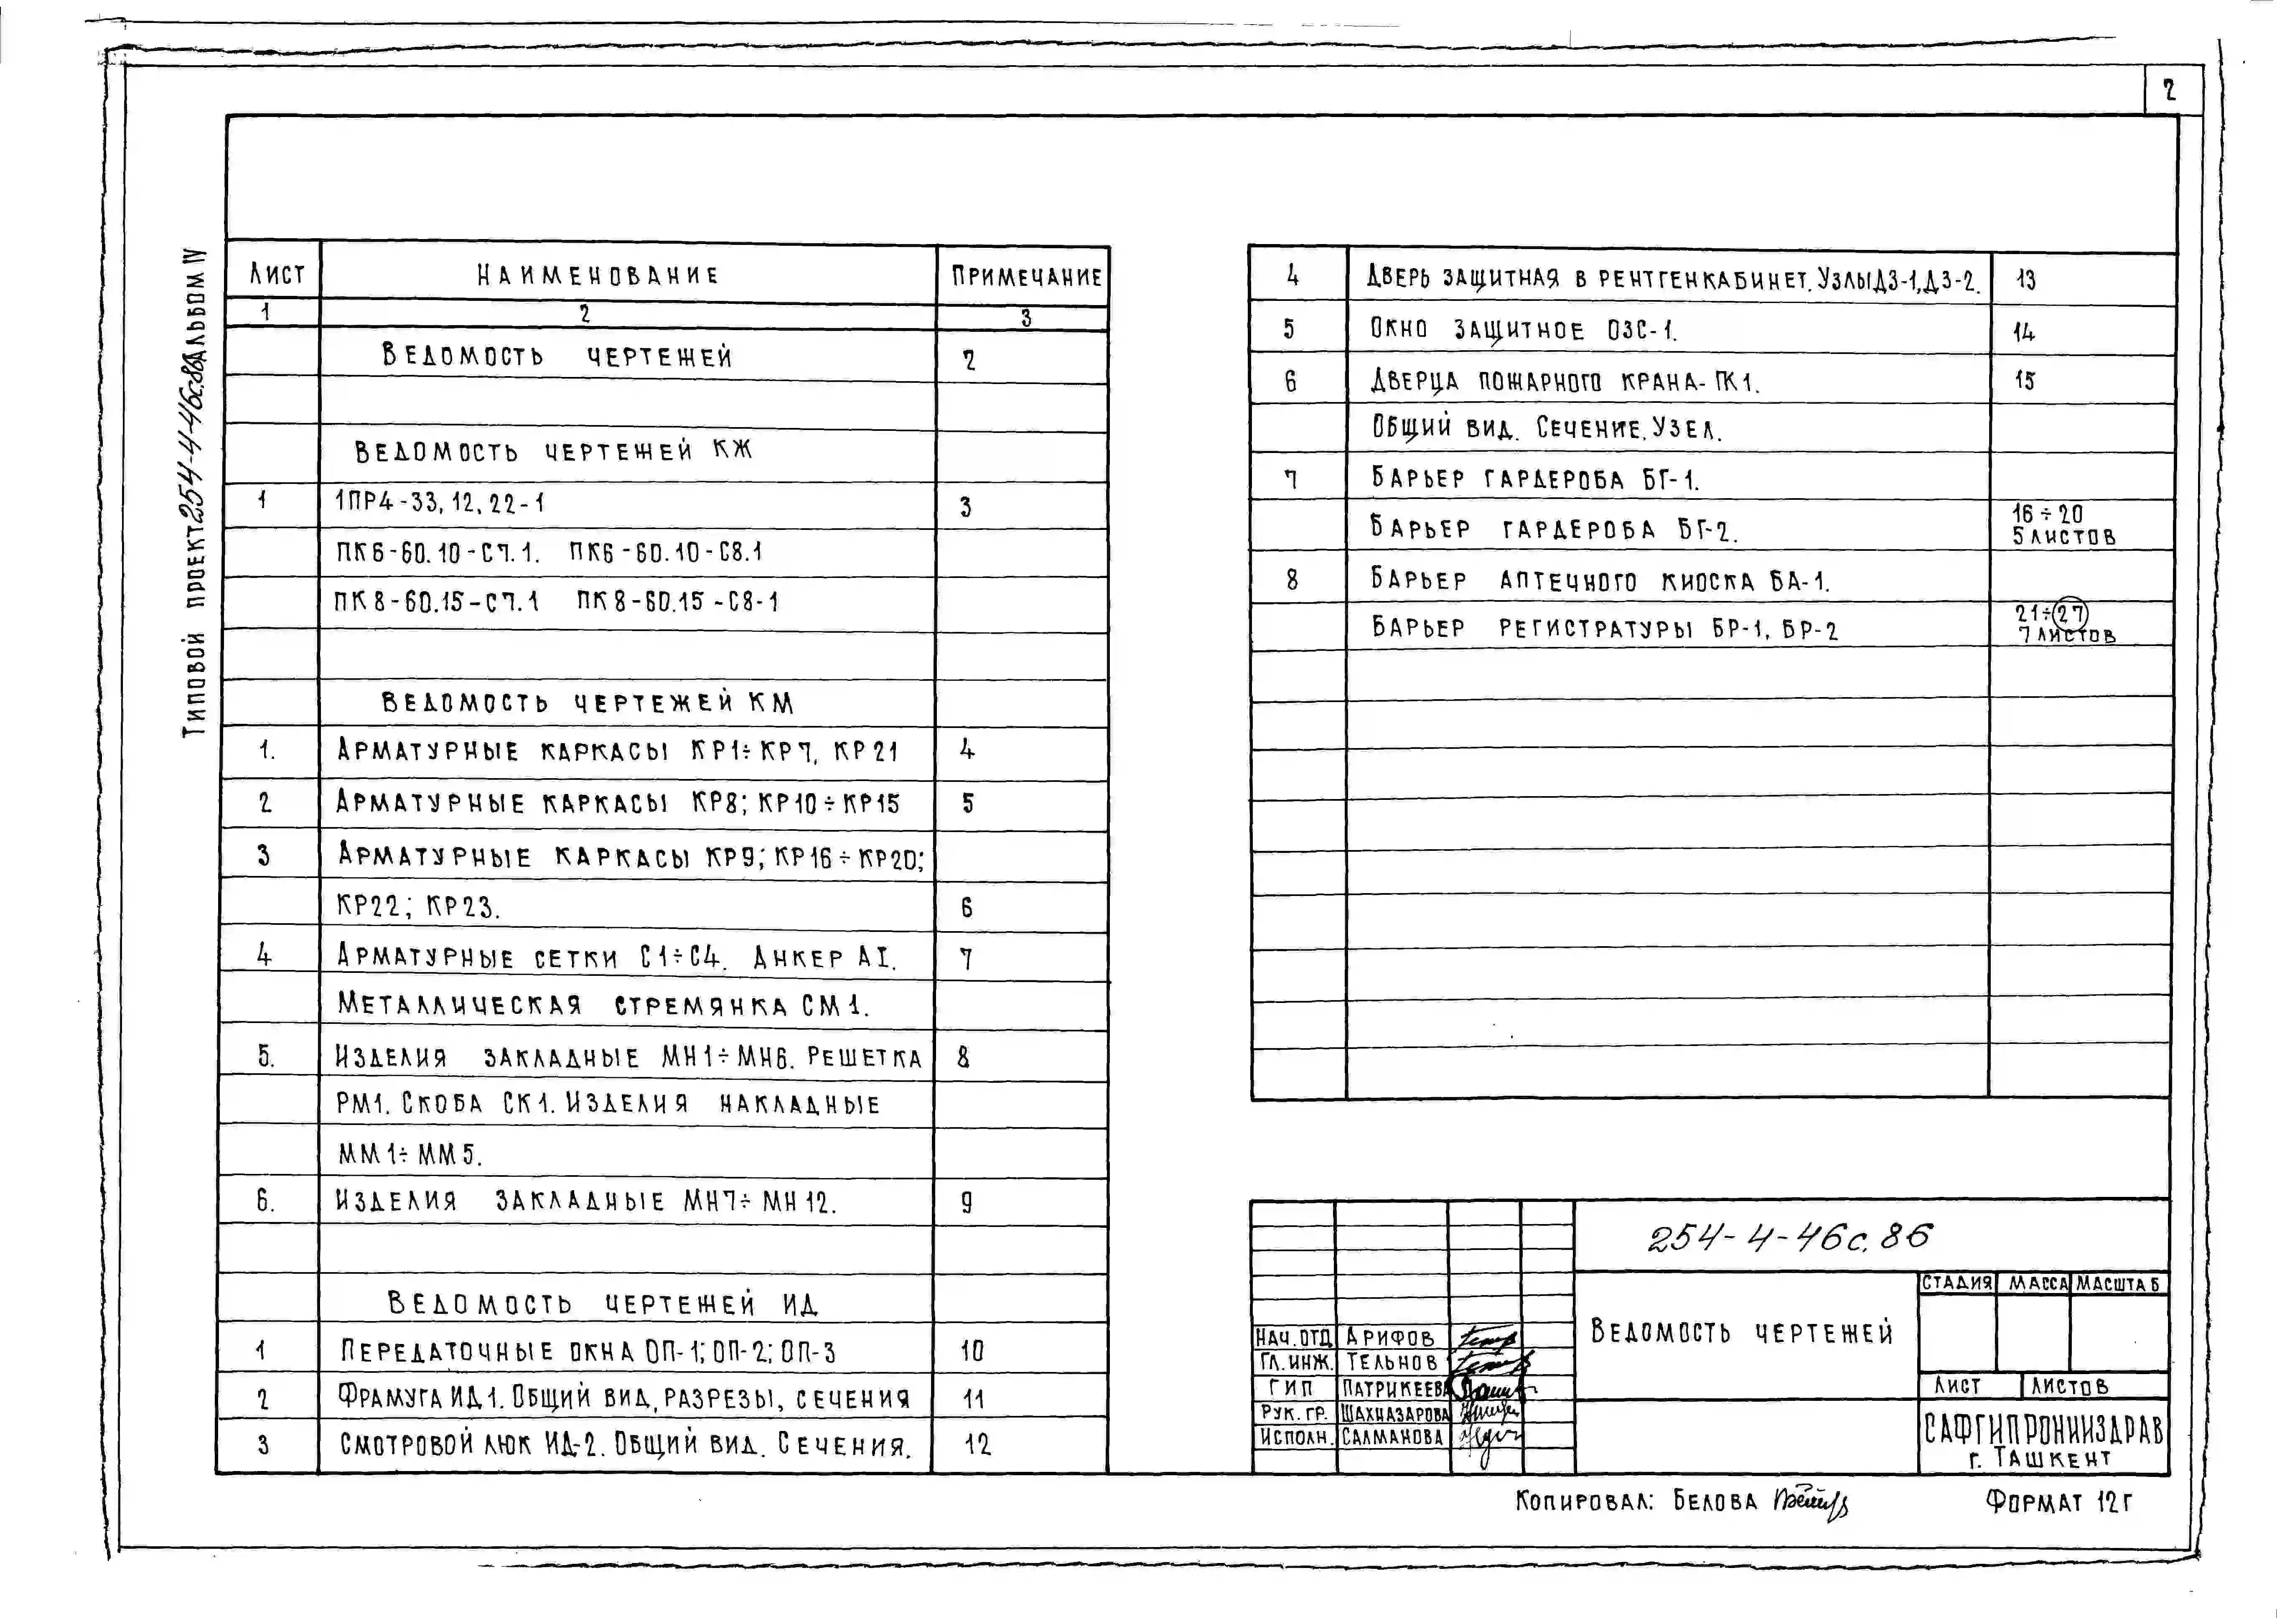 2
Типовой проект 254-4-46с.86 Альбом IV
Лист Наименование Примечание
1 2 3
Ведомость чертежей 2
Ведомость чертежей КЖ
1 1ПР4-33,12,22-1 3
ПК6-60.10-С7.1. ПК6-60.10-С8.1
ПК8-60.15-С7.1 ПК8-60.15-С8-1
Ведомость чертежей КМ
1. Арматурные каркасы КР1÷КР7, КР21 4
2 Арматурные каркасы КР8; КР10÷КР15 5
3 Арматурные каркасы КР9; КР16÷КР20;
КР22; КР23. 6
4 Арматурные сетки С1÷С4. Анкер АI. 7
Металлическая стремянка СМ1.
5. Изделия закладные МН1÷МН6. Решетка 8
РМ1. Скоба СК1. Изделия накладные
ММ1÷ММ5.
6. Изделия закладные МН7÷МН12. 9
Ведомость чертежей ИД
1 Передаточные окна ОП-1; ОП-2; ОП-3 10
2 Фрамуга ИД1. Общий вид, разрезы, сечения 11
3 Смотровой люк ИД-2. Общий вид. Сечения. 12
4 Дверь защитная в рентгенкабинет. Узлы ДЗ-1, ДЗ-2. 13
5 Окно защитное ОЗС-1. 14
6 Дверца пожарного крана-ПК1. 15
Общий вид. Сечение. Узел.
7 Барьер гардероба БГ-1.
Барьер гардероба БГ-2. 16÷20
5 листов
8 Барьер аптечного киоска БА-1.
Барьер регистратуры БР-1, БР-2 21÷27
7 листов
254-4-46с.86
Ведомость чертежей
Стадия Масса Масштаб
Лист Листов
САФГИПРОНИИЗДРАВ
г. Ташкент
Нач.отд Арифов
Гл.инж. Тельнов
ГИП Патрикеева
Рук.гр. Шахназарова
Исполн. Салманова
Копировал: Белова
Формат 12г